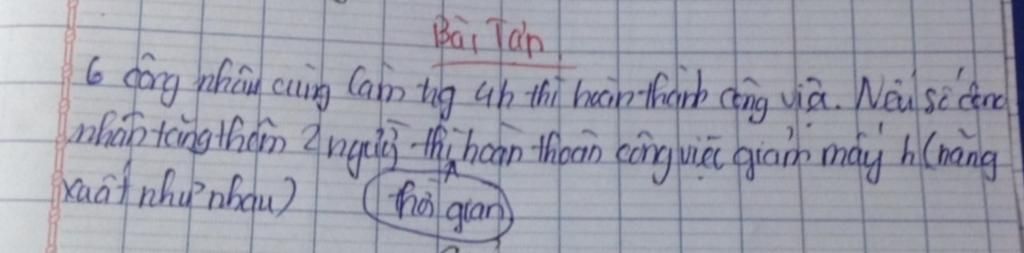 Bài Tập
6 công nhân cùng làm trg 4h thì hoàn thành công việc. Nếu số công
nhân tăng thêm 2 người thì thời gian hoàn thoàn công việc giảm mấy h (năng
xuất như nhau)